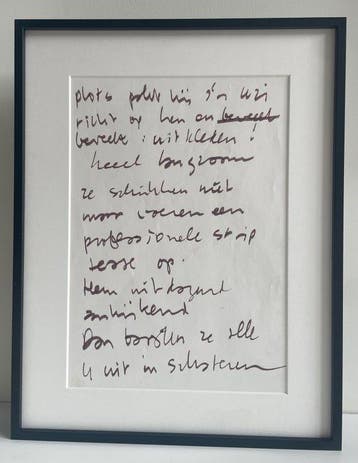 plots pakt hij z'n uzi
richt op hen en beveelt
beveelt : uitkleden !
heeel langzaam
ze schrikken niet
maar voeren een
professionele strip
tease op.
Hem uitdagend
aankijkend
Dan barsten ze alle
4 uit in schateren